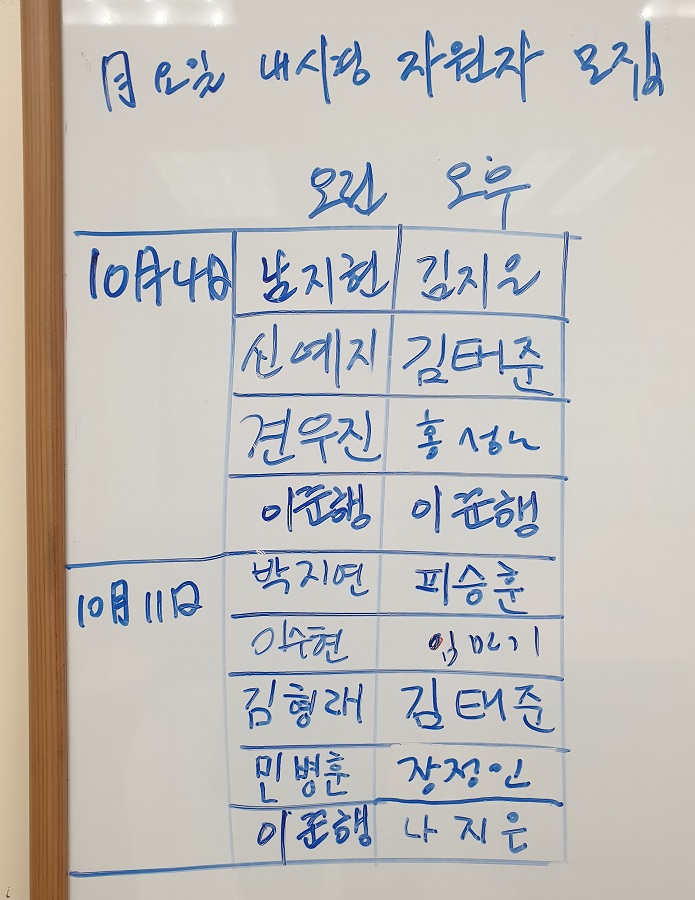 月요일 내시경 자원자 모집
오전 오후
10月4日 남지현 김지은
신예지 김태준
견우진 홍성노
이준행 이준행
10月11日 박지연 피승훈
이수현 임만기
김형래 김태준
민병훈 장정인
이준행 나지은